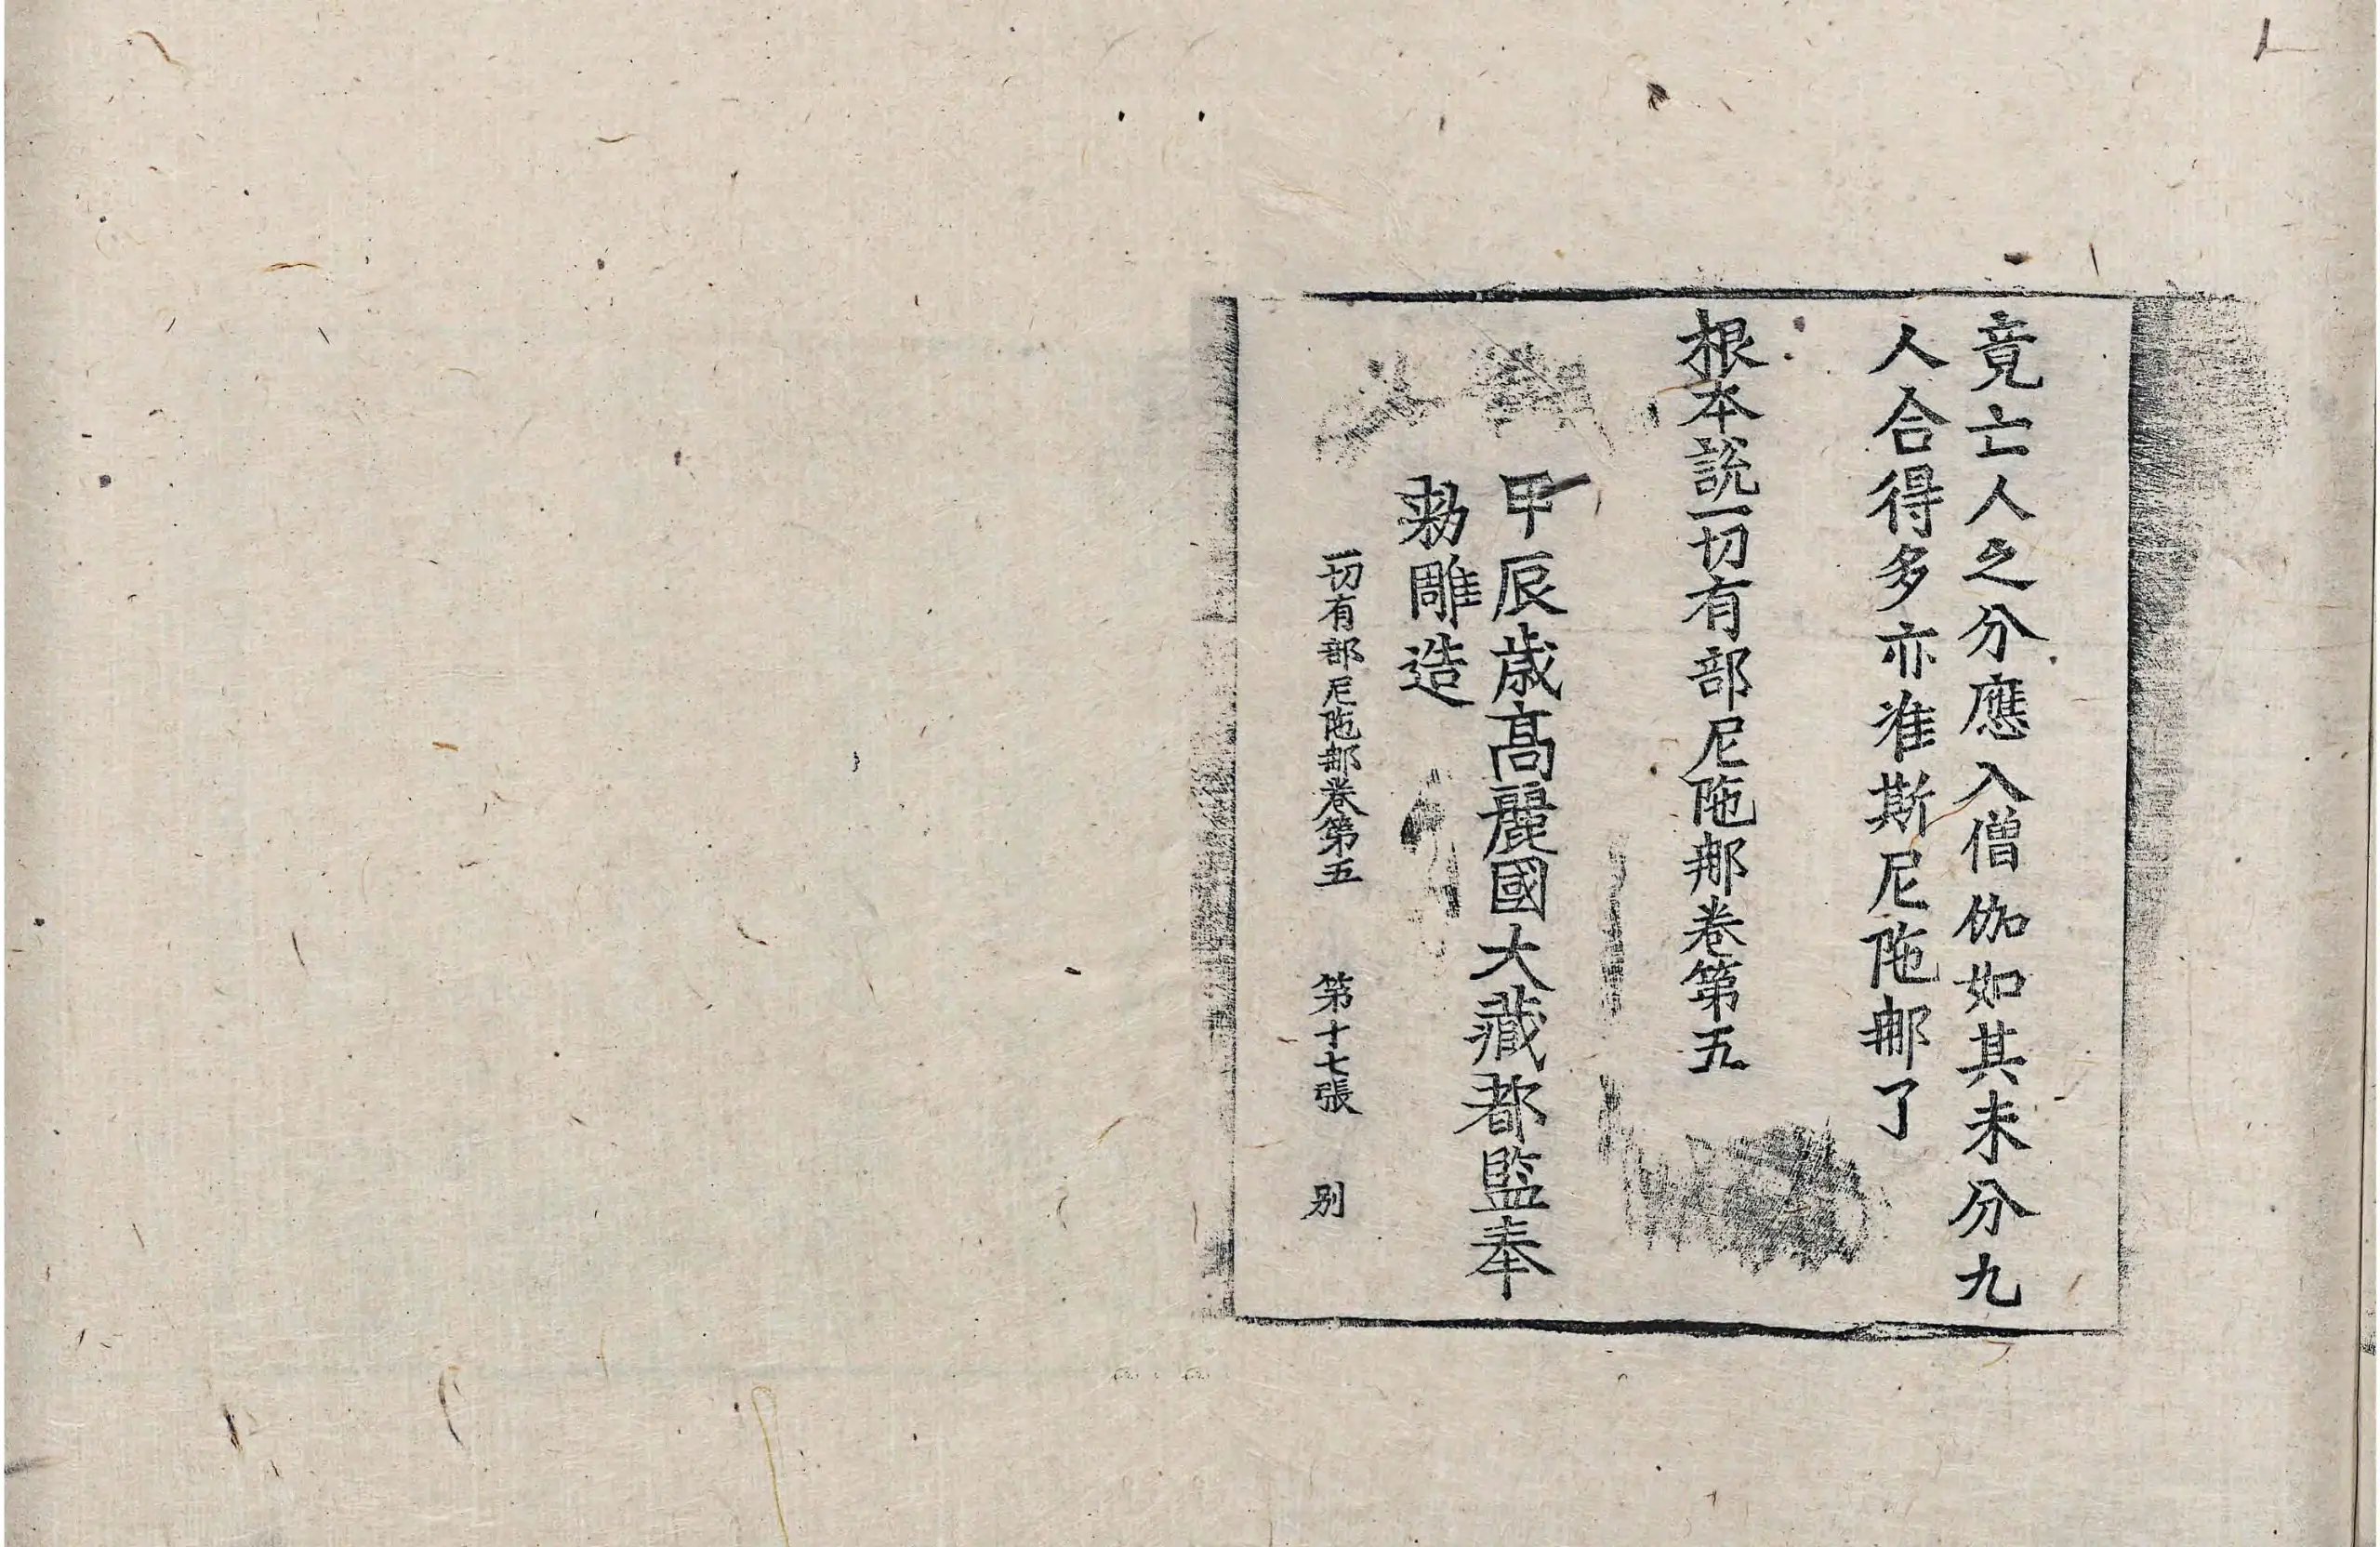 竟亡人之分應入僧伽如其未分九
人合得多亦准斯尼陁郍了
根本說一切有部尼陁郍卷第五
甲辰歳高麗國大藏都監奉
勑雕造
一切有部尼陁郍卷第五 第十七張 别